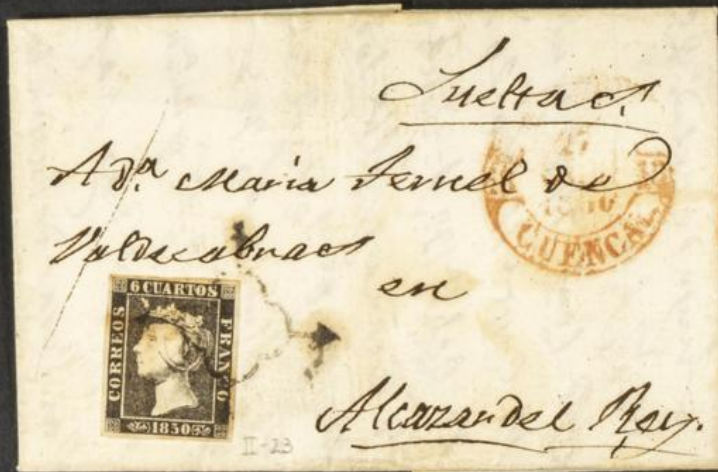 Sueltas.
A Dª Maria Teruel de
Valdecabras
en
Alcazar del Rey.
27
1850
CUENCA.
6 CUARTOS
CORREOS
FRANCO
1850
II-23